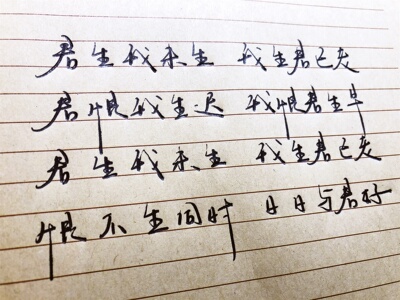 君生我未生 我生君已老
君恨我生迟 我恨君生早
君生我未生 我生君已老
恨不生同时 日日与君好